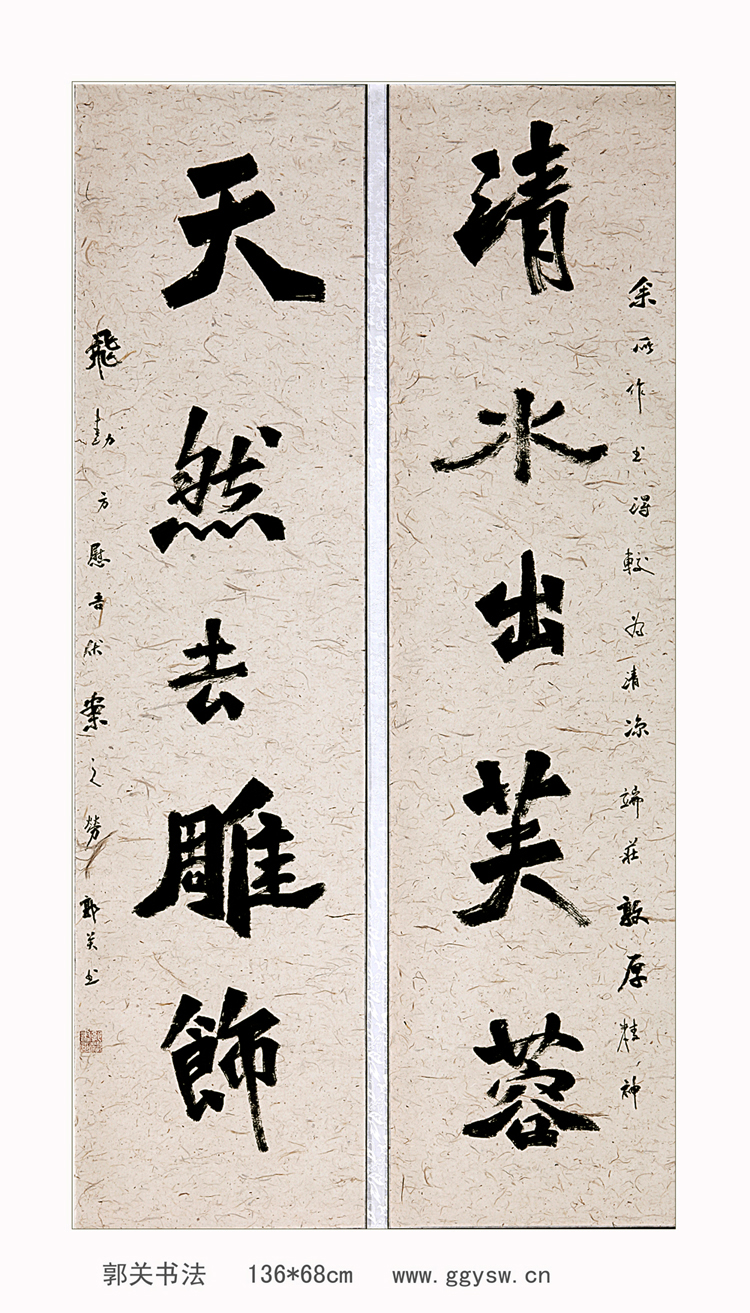 余所作书得较为清凉端莊敦厚精神
清水出芙蓉
天然去雕飾
飛動方慰吾伏案之勞郭关书
郭关书法 136*68cm www.ggysw.cn